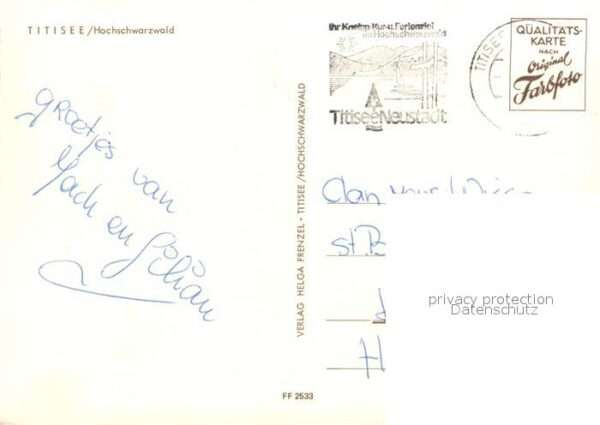 TITISEE/Hochschwarzwald
groetjes van
en
VERLAG HELGA FRENZEL • TITISEE/HOCHSCHWARZWALD
FF 2533
Ihr Kneipp-Kur- u. Ferienziel
im Hochschwarzwald
Titisee Neustadt
TITISEE
QUALITÄTS-
KARTE
NACH
Original
Farbfoto
St.
H
privacy protection
Datenschutz